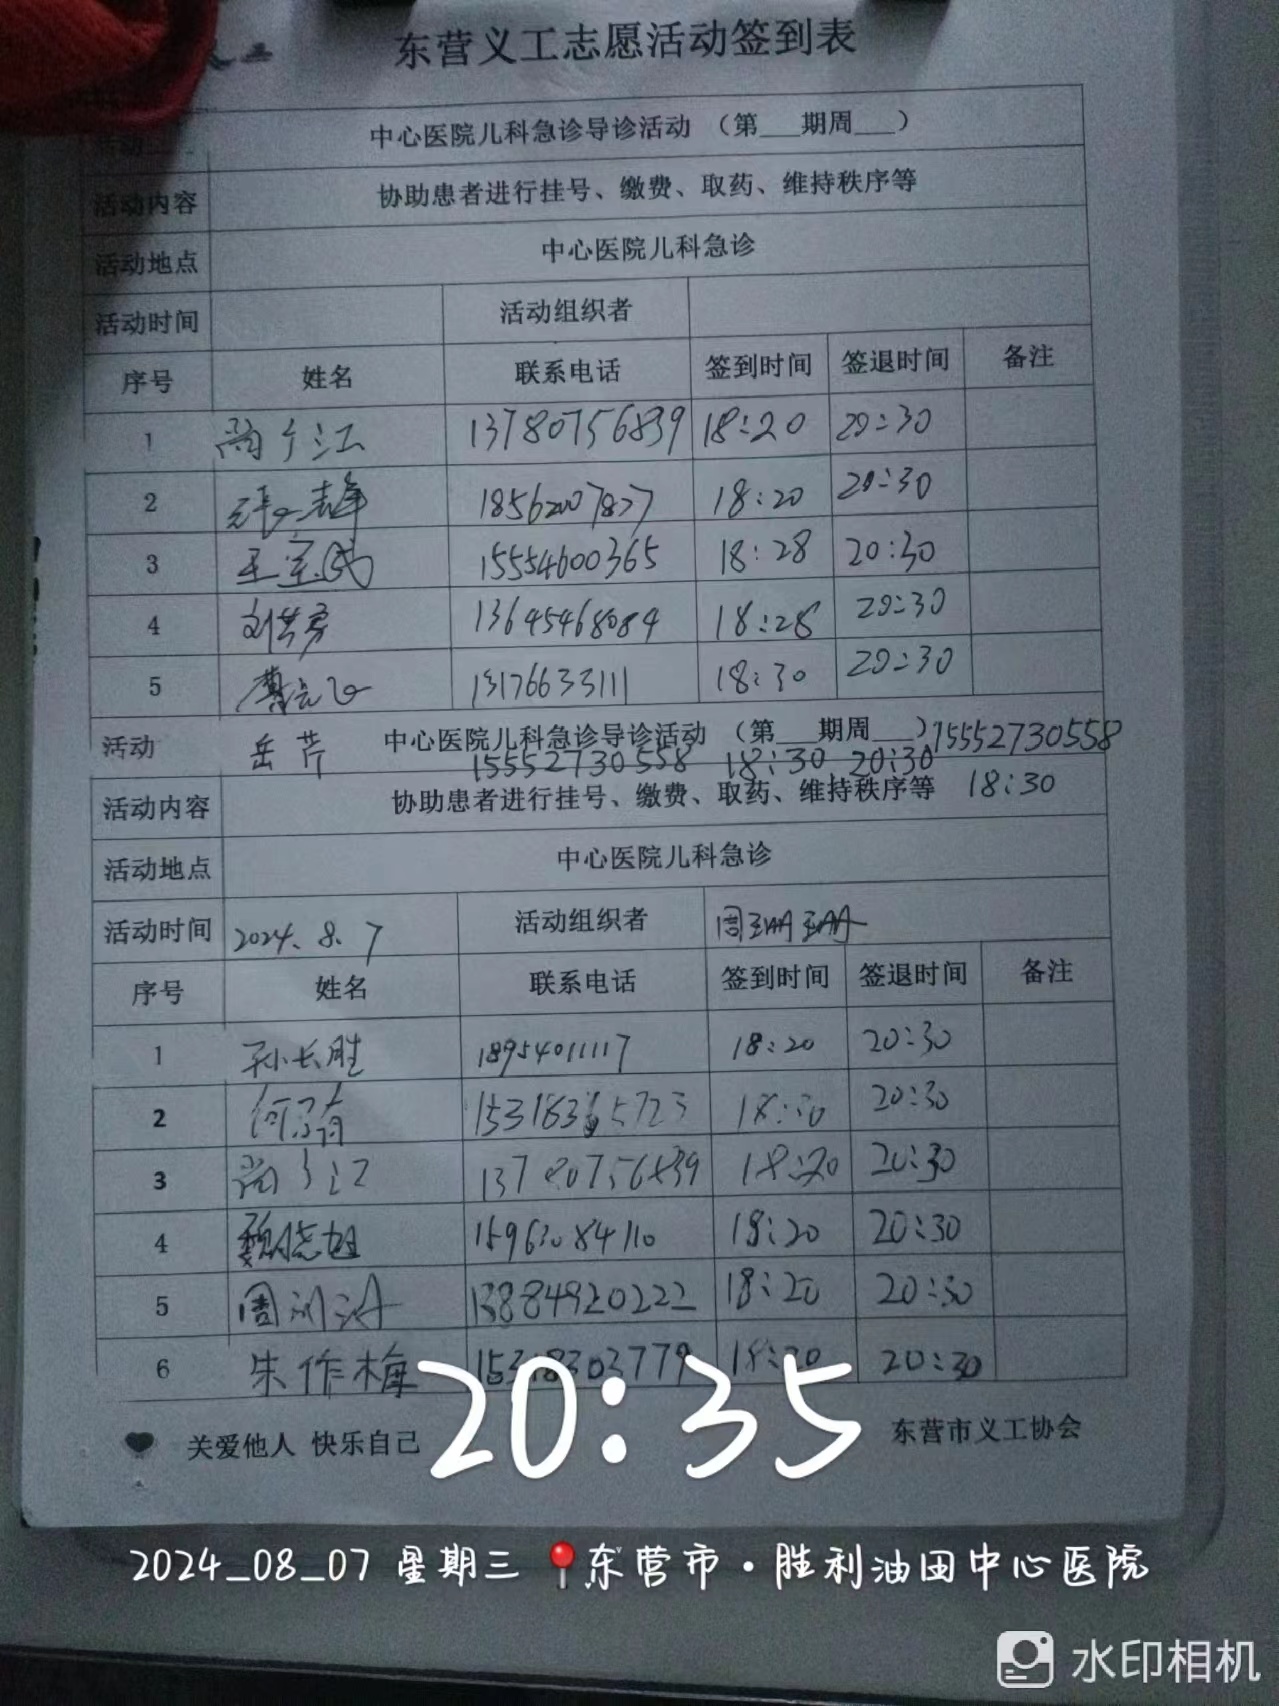 东营义工志愿活动签到表
中心医院儿科急诊导诊活动 （第___期周___）
活动内容 协助患者进行挂号、缴费、取药、维持秩序等
活动地点 中心医院儿科急诊
活动时间 活动组织者
序号 姓名 联系电话 签到时间 签退时间 备注
1 13780756839 18:20 20:30
2 18562007827 18:20 20:30
3 15554600365 18:28 20:30
4 13645468084 18:28 20:30
5 13176633111 18:30 20:30
活动 中心医院儿科急诊导诊活动 （第___期周___） 15552730558
岳芹 15552730558 18:30 20:30
活动内容 协助患者进行挂号、缴费、取药、维持秩序等 18:30
活动地点 中心医院儿科急诊
活动时间 2024.8.7 活动组织者
序号 姓名 联系电话 签到时间 签退时间 备注
1 孙长胜 18954011117 18:20 20:30
2 20:30
3 13780756839 18:20 20:30
4 18:20 20:30
5 13884920222 18:20 20:30
6 朱作梅 15318303779 18:20 20:30
关爱他人 快乐自己 东营市义工协会
20:35
2024_08_07 星期三 东营市·胜利油田中心医院
水印相机